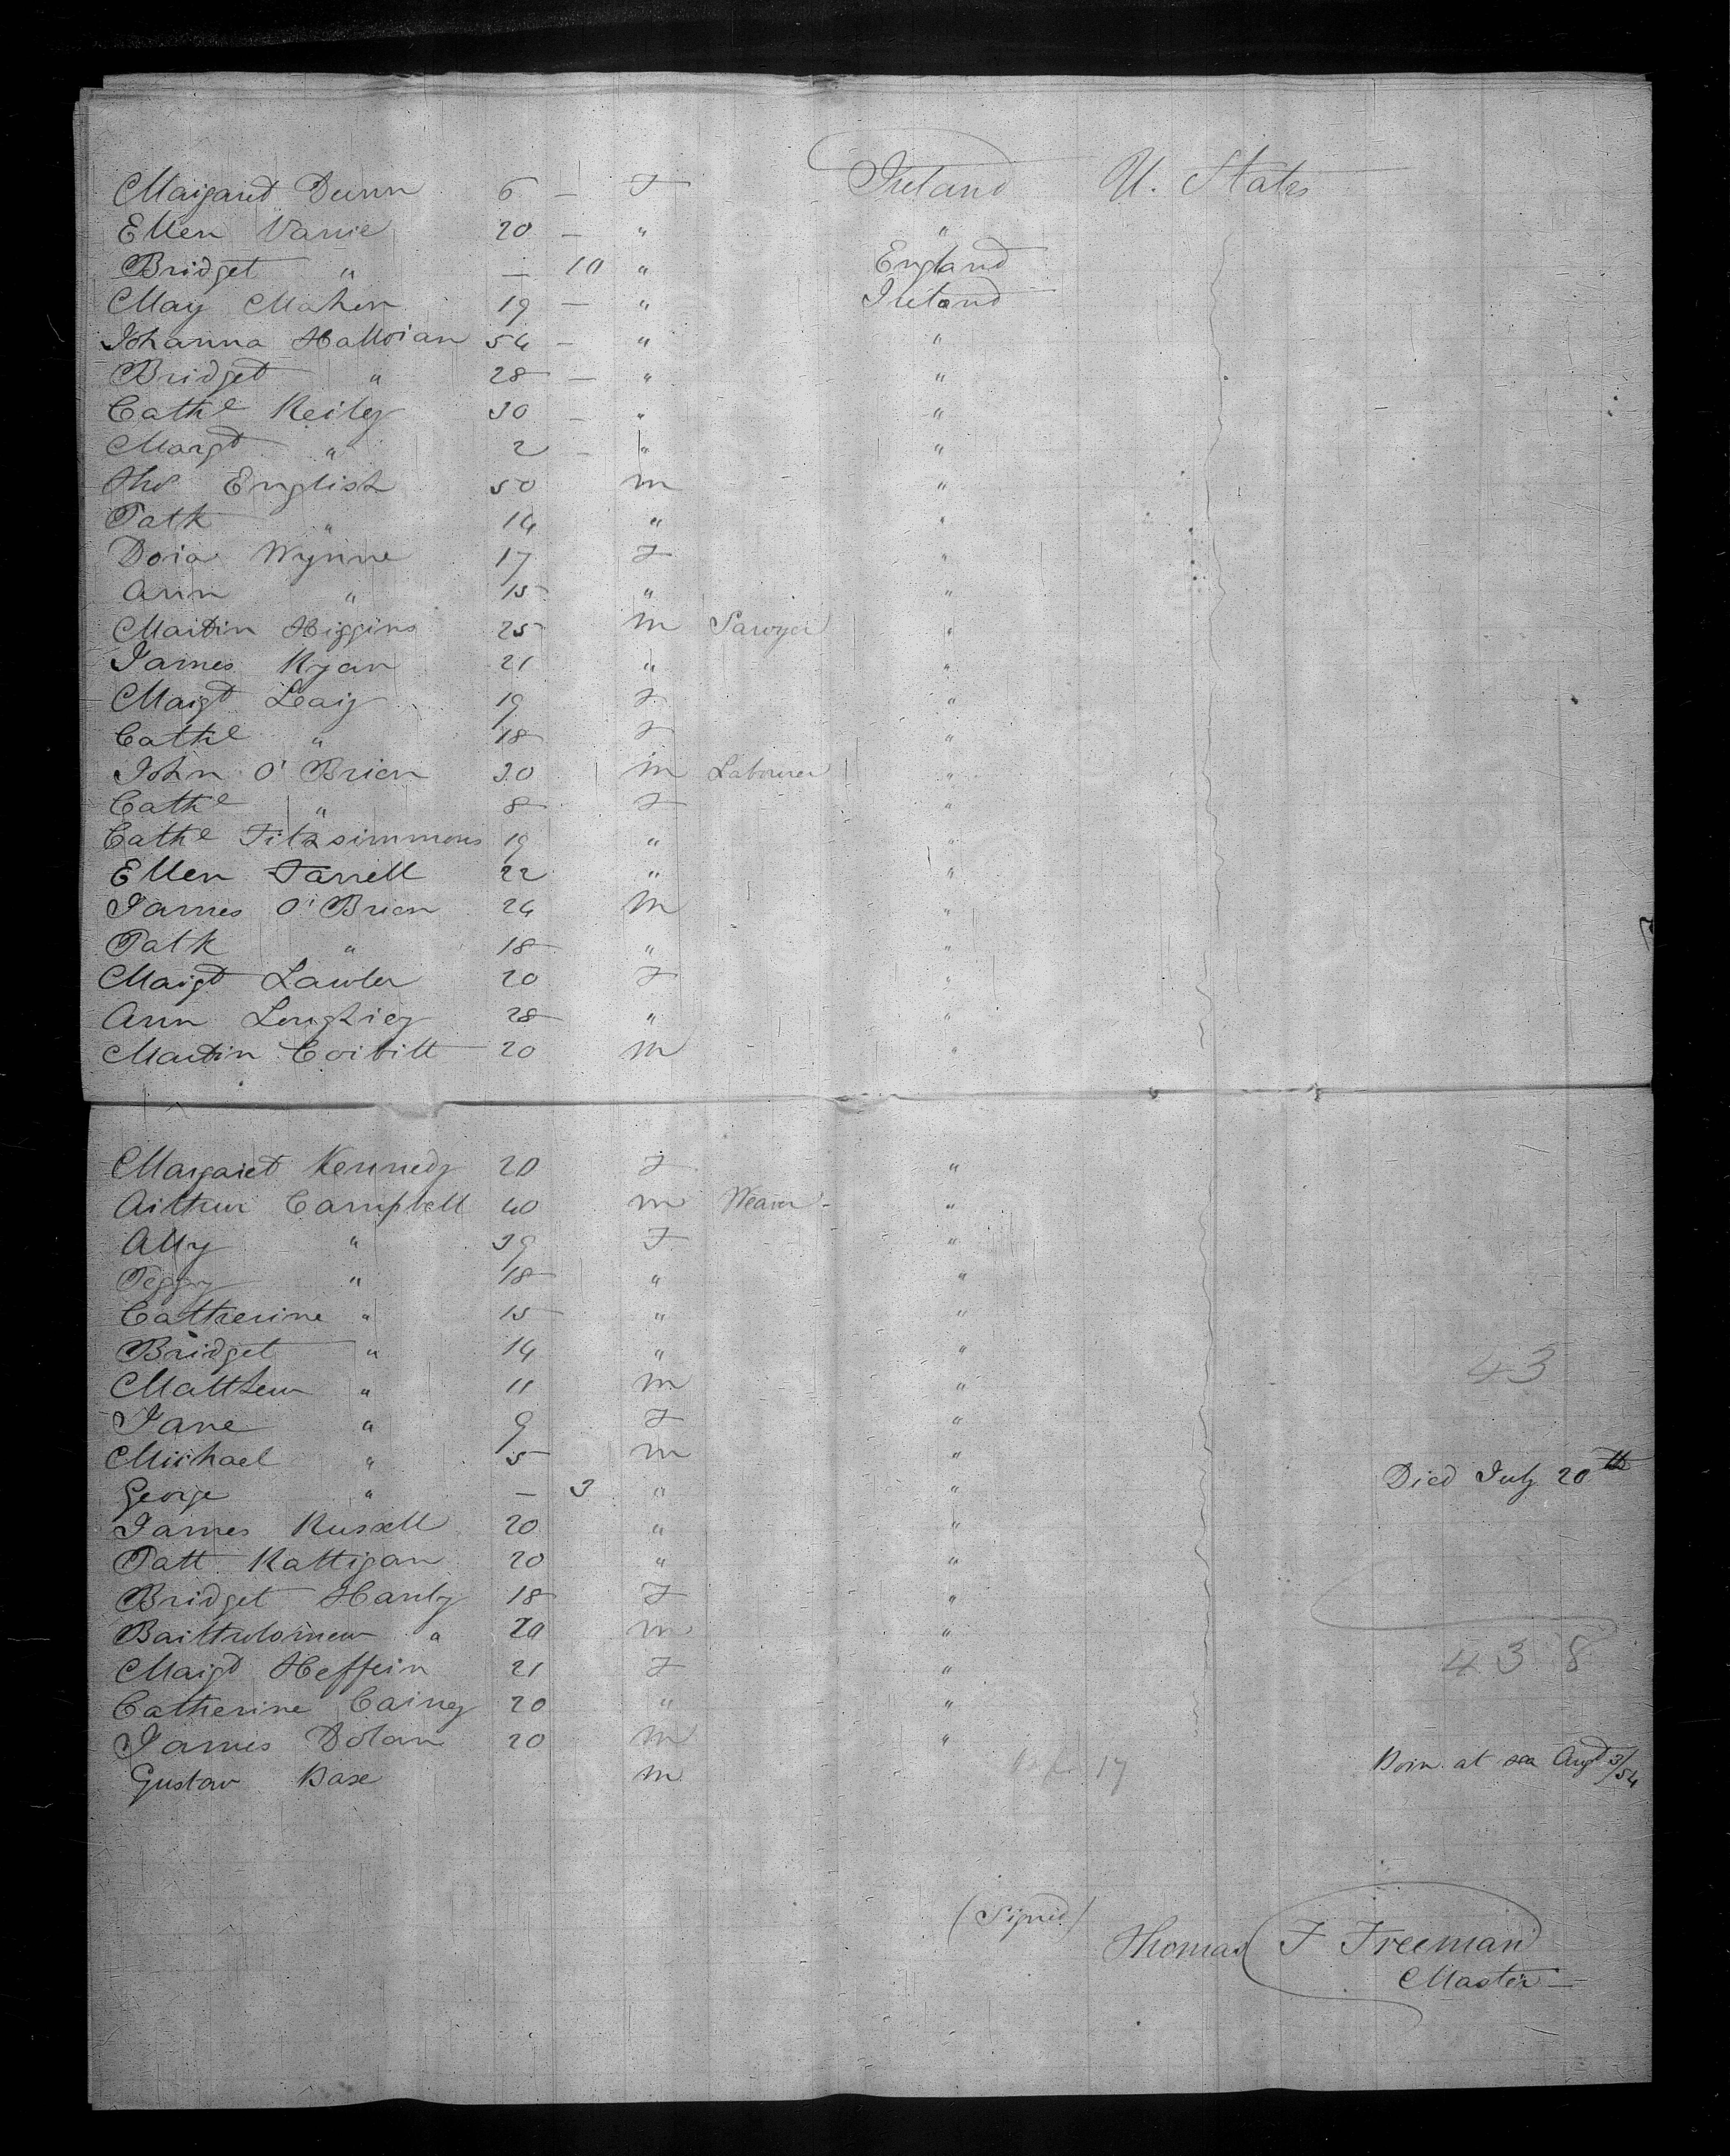 Margaret Dunn 6 — F Ireland U. States
Ellen Varrie 20 — " "
Bridget " — 10 " England
May Maher 19 — " Ireland
Johanna Halloran 54 — " "
Bridget " 28 — " "
Cathe Reiley 30 — " "
Margt " 2 — " "
Thos English 50 m "
Patk " 14 " "
Dora Wynne 17 F "
Ann " 15 " "
Martin Higgins 25 m Sawyer "
James Ryan 21 " "
Margt Leary 19 F "
Cathe " 18 F "
John O'Brien 30 m Labourer "
Cathe " 8 F "
Cathe Fitzsimmons 19 " "
Ellen Farrell 22 " "
James O'Brien 24 m "
Patk " 18 " "
Margt Lawler 20 F "
Ann Loughrey 28 " "
Martin Corbitt 20 m "
Margaret Kennedy 20 F "
Arthur Campbell 40 m Weaver - "
Ally " 39 F "
Peggy " 18 " "
Catherine " 15 " "
Bridget " 14 " "
43
Matthew " 11 m "
Jane " 9 F "
Michael " 5 m "
George " — 3 " " Died July 20th
James Russell 20 " "
Patt Rattigan 20 " "
Bridget Hanly 18 F "
Bartholomew " 20 m "
Margt Heffrin 21 F " 438
Catherine Cainey 20 " "
James Dolan 20 m "
Gustav Base m 17 Born at sea Augt 3/54
(Signed)
Thomas F Freeman
Master